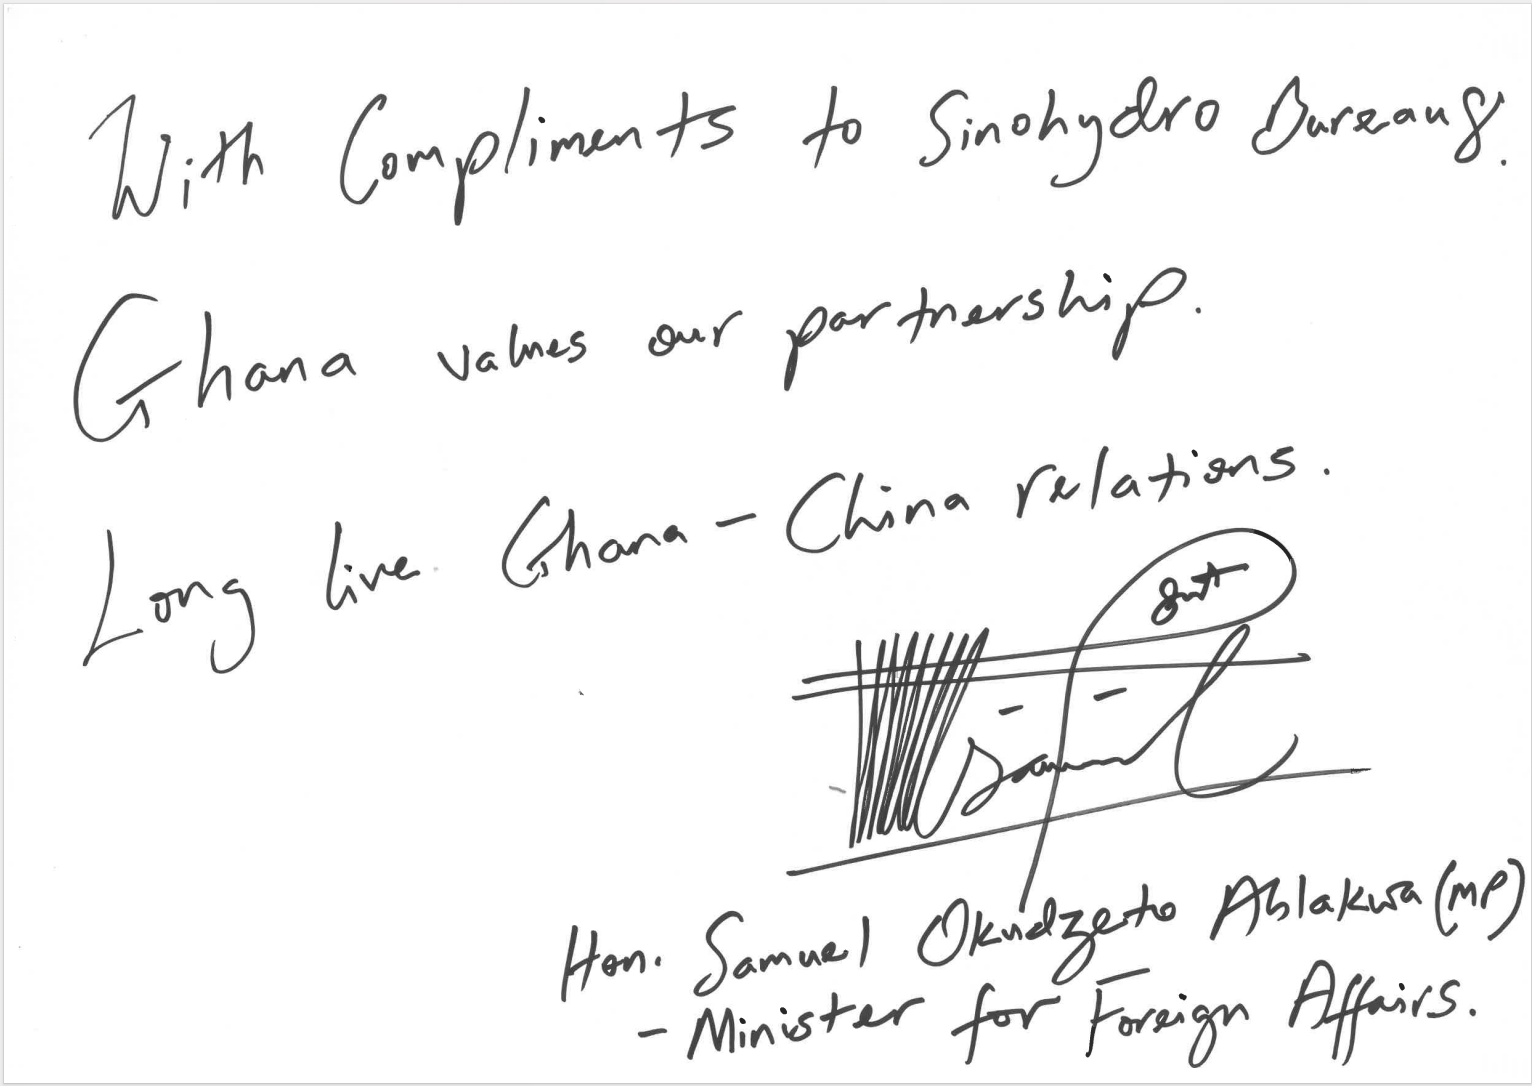 With Compliments to Sinohydro Bureau 8.
Ghana values our partnership.
Long live Ghana - China relations.
Samuel
Hon. Samuel Okudzeto Ablakwa (MP)
- Minister for Foreign Affairs.